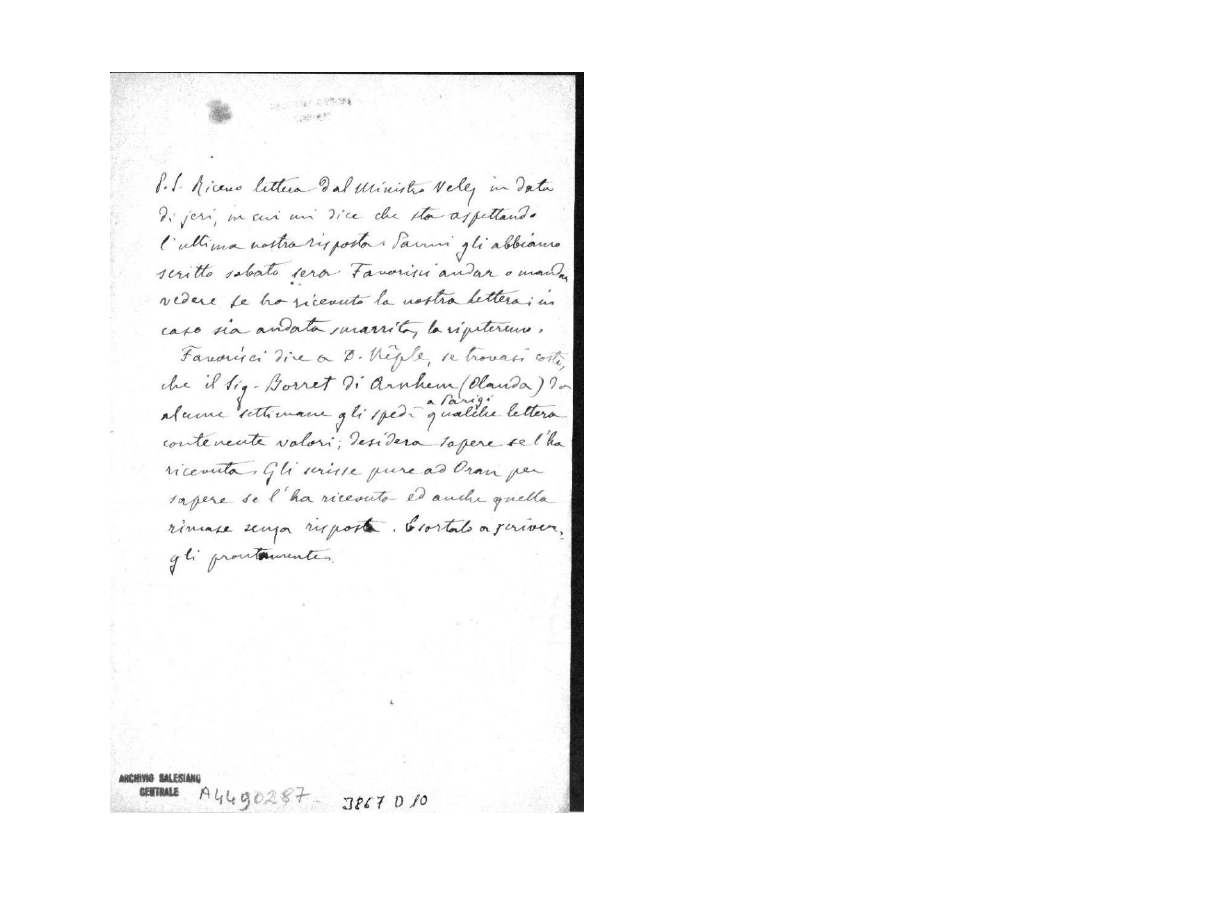 P.S. Ricevo lettera dal Ministro Velez in data
di jeri, in cui mi dice che sta aspettando
l'ultima nostra risposta. Parmi gli abbiamo
scritto sabato sera. Favorisci andar o mandar
vedere se ha ricevuto la nostra lettera; in
caso sia andata smarrita, la ripeteremo.
Favorisci dire a D. se trovasi costì,
che il Sig. Borret di Arnhem (Olanda) da
a Parigi
alcune settimane gli spedì qualche lettera
contenente valori; desidera sapere se l'ha
ricevuta. Gli scrisse pure ad Oran per
sapere se l'ha ricevuto ed anche quella
rimase senza risposta. Esortalo a scriver,
gli prontamente.
ARCHIVIO SALESIANO
CENTRALE
A4490287
3867 D 10